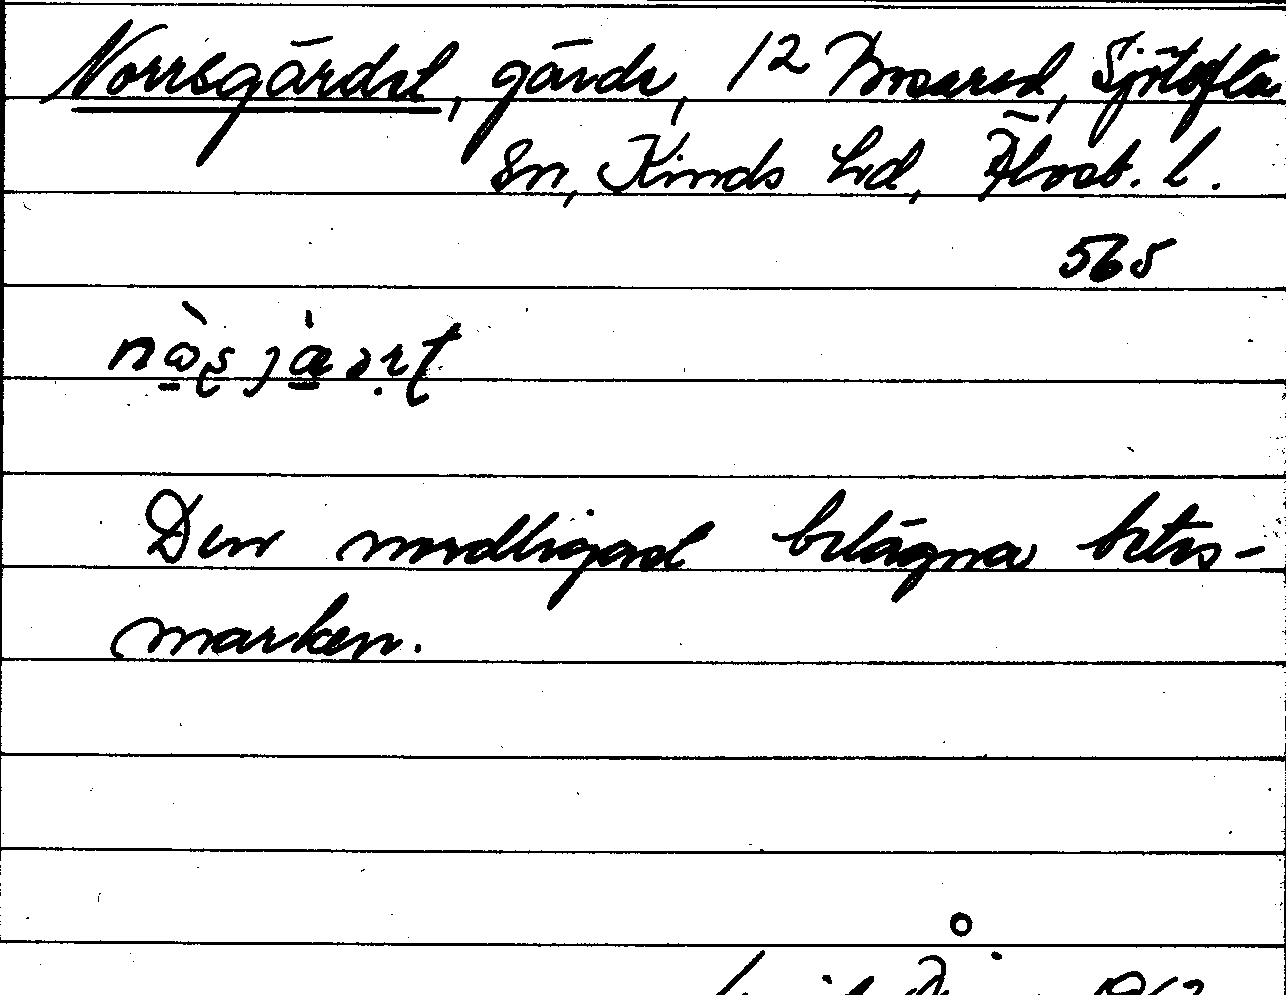 Norrsgärdet, gärde, 12 Bosared, Sjötofta
Sn, Kinds hd, Älvsb. l.
565
Den nordligast belägna betes-
marken.